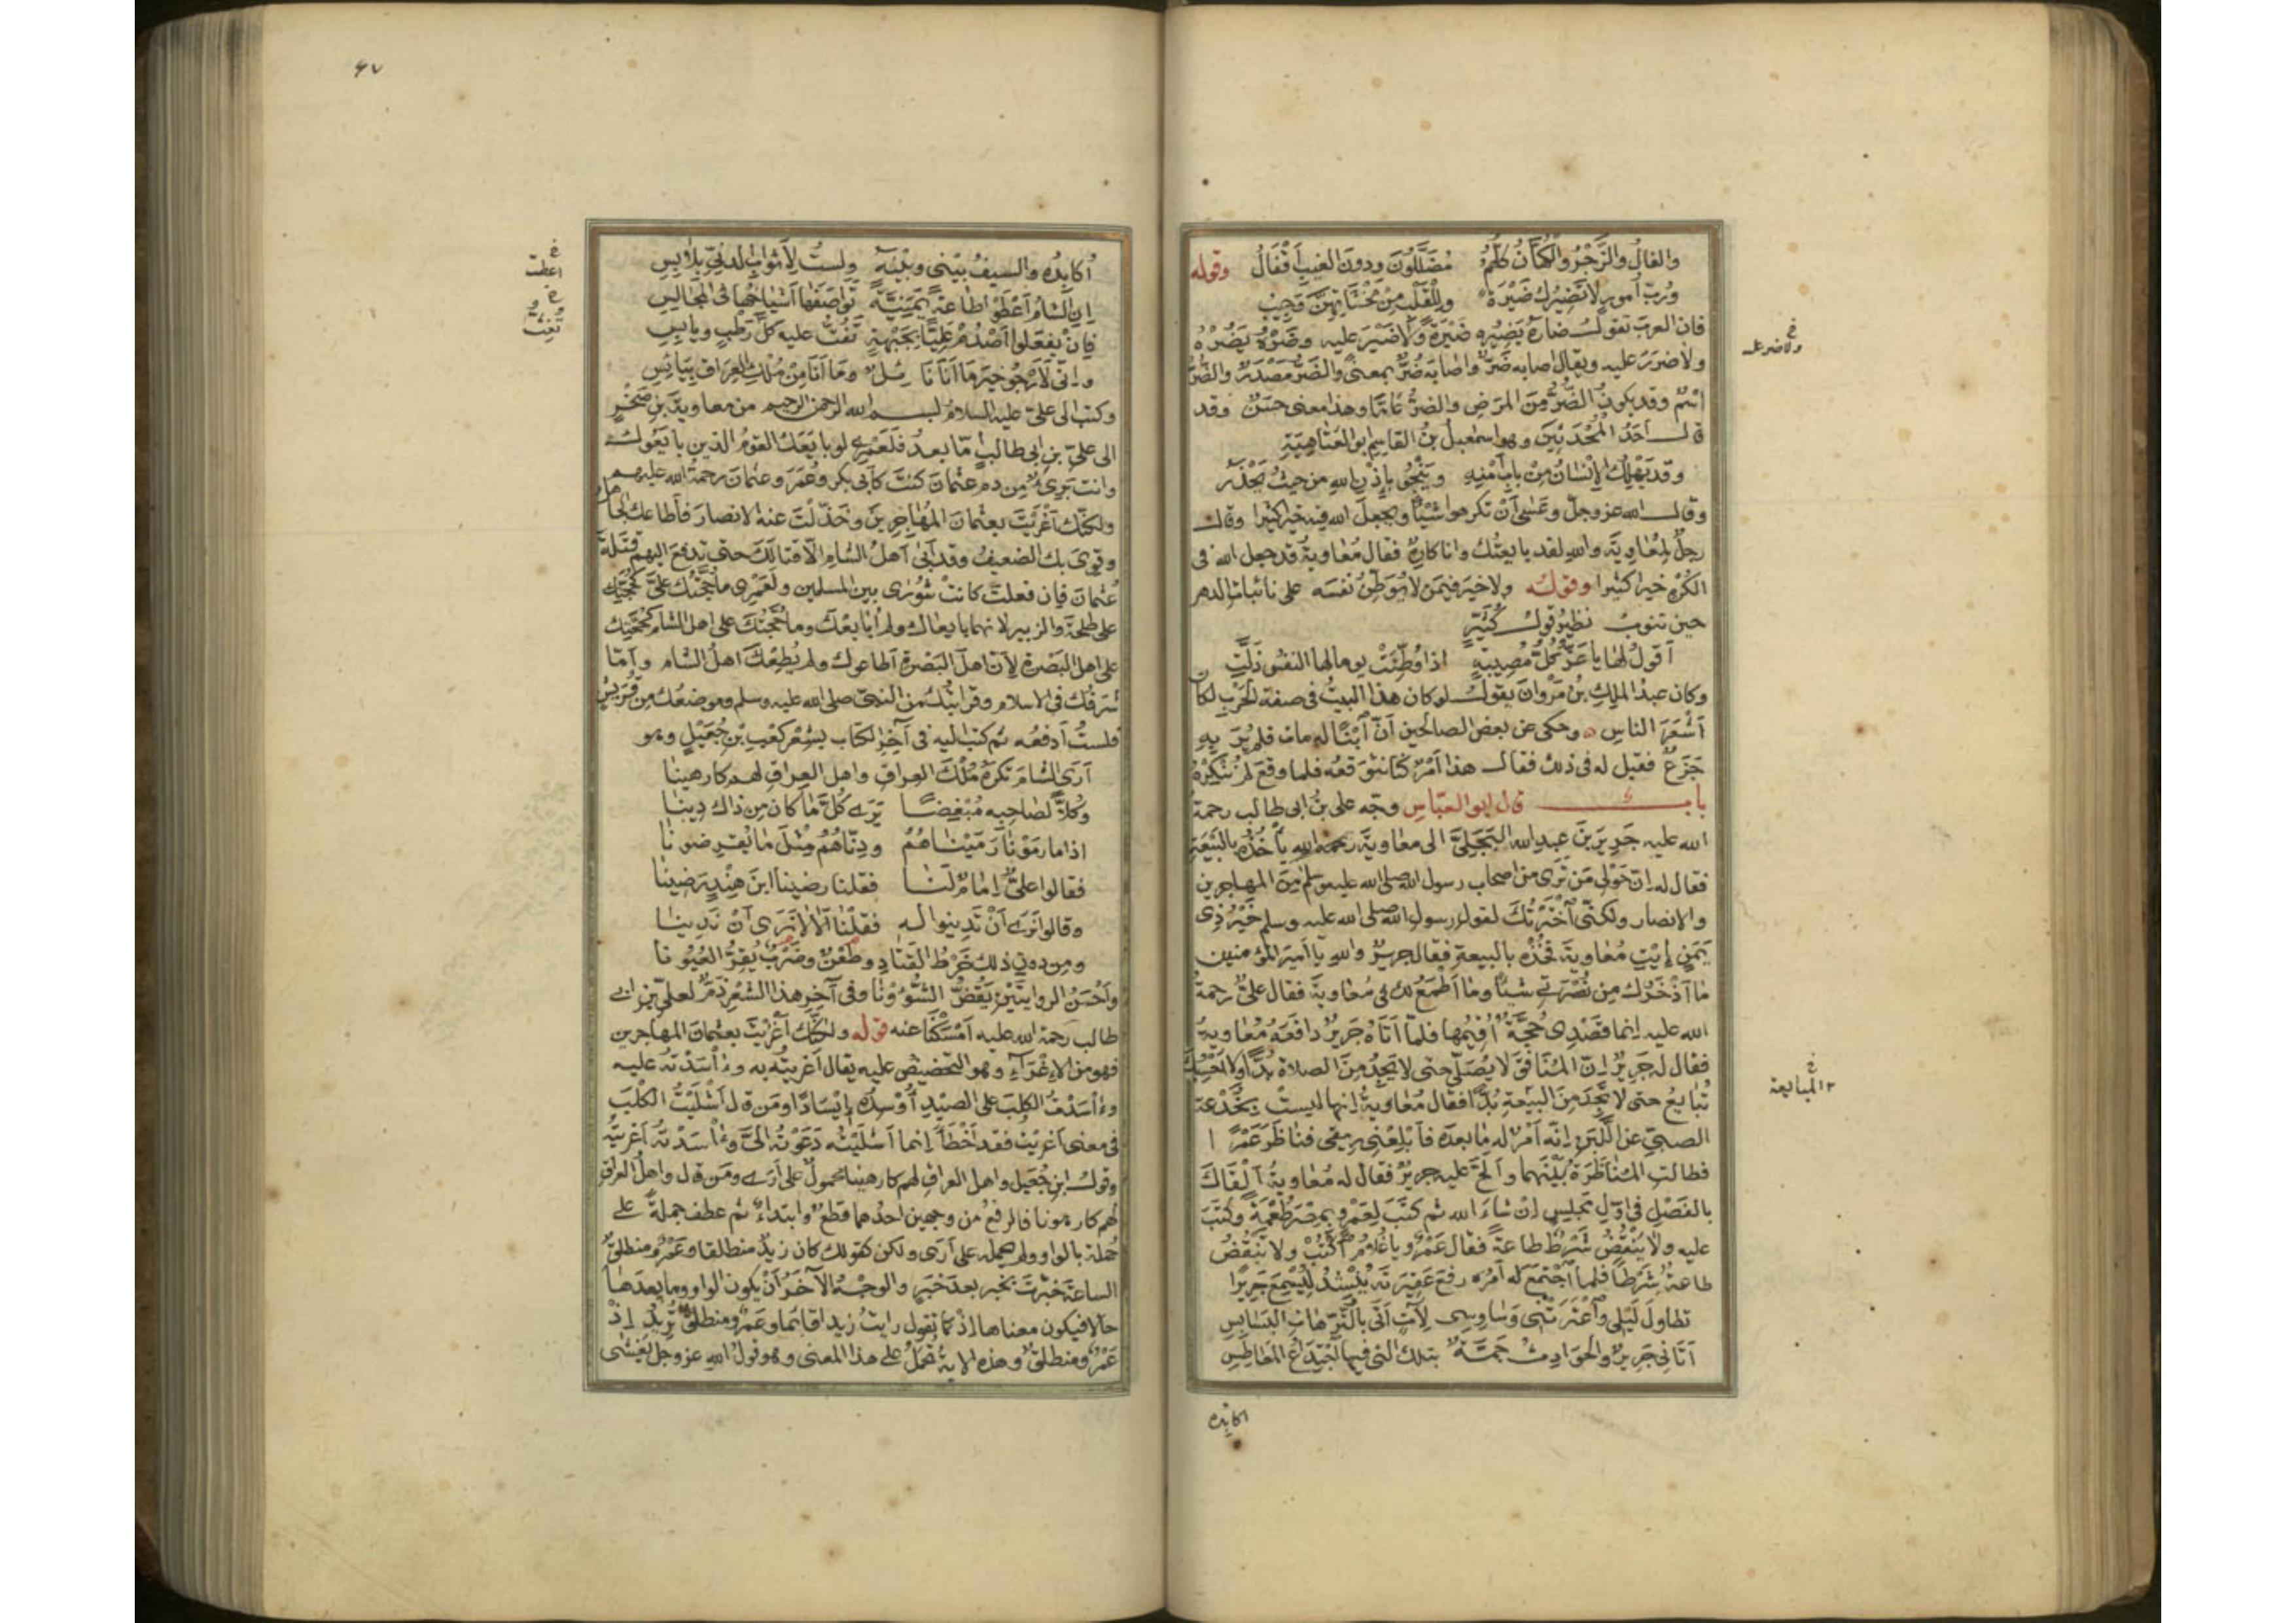 والفالُ والزَّجْرُ والكُهَّانُ كلُّهمُ مُضَلَّلُونَ ودونَ الغيبِ أَقْفَالُ وقوله
ورُبَّ أمورٍ لا تَضِيرُكَ ضَيْرَةً وللقَلْبِ مِنْ مَخْشَاتِهِنَّ وَجِيبُ
فان العربَ تقولُ ضارَهُ يَضِيرُه ضَيْرَةً ولا ضَيْرَ عليه وضَرَّهُ يَضُرُّهُ
ولا ضَرَرَ عليه ويقال اصابه ضَرٌّ واصابه ضُرٌّ بمعنًى والضَّرُّ مَصْدَرٌ والضُّرُّ
اسْمٌ وقد يكونُ الضُّرُّ مِنَ المرَضِ والضرُّ عَامًّا وهذا معنى حسَنٌ وقد
قال أحَدُ المُحْدَثِينَ وهو اسمعيلُ بنُ القاسمِ ابو العَتَاهِيَةِ
وقد يَهْلِكُ الإنْسَانُ مِنْ بابِ أَمْنِهِ ويَنْجُى بإذْنِ اللهِ من حيثُ يَحْذَرُ
وقال الله عز وجلّ وعَسَى أنْ تكرهوا شيْئًا ويجعلَ الله فيه خيرا كثيرا وقال
رجلٌ لمُعَاوِيَةَ واللهِ لقد بايعتُكَ وانا كارهٌ فقال مُعَاويةُ قد جعل الله فى
الكُرْهِ خيرا كثيرا وقولُه ولا خيرَ فيمَنْ لا يُوَطِّنُ نفسَه على نائباتِ الدهر
حين تنوبُ نظيرُ قولِ كُثَيِّرٍ
أقولُ لها يا عَزَّ كُلُّ مُصِيبَةٍ اذا وُطِّنَتْ يوما لها النفسُ ذَلَّتِ
وكان عبدُ الملِكِ بنُ مَرْوَانَ يقولُ لو كان هذا البيتُ فى صفة الحَرْبِ لكان
أشْعَرَ الناسِ وحكى عن بعضِ الصالحين أنّ ابْنًا له مات فلم يُرَ بهِ
جَزَعٌ فقيل له فى ذلك فقال هذا أَمْرٌ كُنّا نتوقعُه فلما وقع لم نُنْكِرْهُ
باب قال ابو العبّاسِ وجّه علىُّ بنُ ابى طالبٍ رحمةُ
الله عليه جَرِيرَ بنَ عبدِ الله البَجَلِيَّ الى معاويةَ رحمه الله يأخُذُه بالبَيْعَةِ
فقال له إنّ حَوْلى مَن تَرَى من اصحاب رسول الله صلى الله عليه وسلم مِنَ المهاجرين
والانصار ولكنّى اخْتَرْتُكَ لقول رسول الله صلى الله عليه وسلم خَيْرُ ذِى
يَمَنٍ إيتِ مُعَاويةَ فخُذْه بالبيعةِ فقال جريرٌ والله يا أميرَ المؤمنين
ما أدَّخِرُكَ مِن نُصْرَتى شيئًا وما أطْمَعُ لكَ فى مُعَاويةَ فقال علىٌّ رحمةُ
الله عليه إنما قَصْدِى حُجَّةٌ أُقِيمُها فلمّا أتَاهُ جَرِيرٌ دافَعَهُ مُعَاويةُ
فقال له جَرِيرٌ إنّ المُنَافقَ لا يُصَلّى حتى لا يَجِدَ مِنَ الصلاةِ بُدًّا ولا أحْسِبُكَ
تُبَايعُ حتى لا تَجِدَ مِنَ البَيْعةِ بُدًّا فقال مُعَاويةُ إنها ليستْ بخُدْعَةِ
الصبىِّ عن اللَّبَنِ إنّه أمْرٌ له ما بعدَه فأَبْلِعْنِى رِيقى فناظَرَ عَمْرًا
فطالتِ المُنَاظَرَةُ بيْنَهما وألَحَّ عليه جريرٌ فقال له مُعَاويةُ ألْقَاكَ
بالفَصْلِ فى أوّلِ مَجْلِسٍ إنْ شاءَ الله ثم كتَبَ لِعَمْرٍو بمِصْرَ طُعْمَةً وكتَبَ
عليه ولا يَنْقُضُ شَرْطٌ طاعةً فقال عَمْرٌو يا غُلامُ اكْتُبْ ولا تَنْقُضُ
طاعةٌ شَرْطًا فلما اجْتَمَعَ له أمْرُه رفَعَ عَقِيرَتَه يُنْشِدُ لِيُسْمِعَ جَرِيرًا
تطاوَلَ لَيْلِى واعْتَرَتْنِى وَسَاوِسِى لِآتٍ أتَى بالتُّرَّهَاتِ البَسَابِسِ
أتَانِى جَرِيرٌ والحوَادِثُ جَمَّةٌ بتلكَ التى فيها اجْتِدَاعُ المَعَاطِسِ
اكابده
خ ولا ضر عليه
خ المبايعة
٤٧
أُكابِدُه والسيفُ بَيْنى وبَيْنَهُ ولستُ لِأثوابِ الدنىّ بلابِسِ
إنِ الشامُ أَعْطَوْا طاعةً يَمَنِيَّةً تَوَاصَفَها أشياخُها فى المَجَالِسِ
فإنْ يفعَلوا أَصْدِمْ عَلِيًّا بجَبْهةٍ تَفُتُّ عليه كلَّ رَطْبٍ ويابِسِ
وإنّى لأرْجُو خيرَ ما أنا نائِلٌ وما أنا مِنْ مُلْكِ العِرَاقِ بيَائِسِ
وكتب الى علىّ عليه السلامُ بسم الله الرحمن الرحيم من معاويةَ بنِ صَخْرٍ
الى علىّ بنِ ابى طالبٍ أمّا بعدُ فلَعَمْرِى لو بايَعَكَ القومُ الذين بايَعُوكَ
وانتَ بَرِىءٌ مِن دمِ عثمانَ كنتَ كأبى بكرٍ وعُمَرَ وعثمانَ رحمةُ الله عليهم
ولكنّكَ أغْرَيْتَ بعثمانَ المُهَاجرينَ وخَذَّلْتَ عنهُ الانصارَ فأطاعك الجاهلُ
وقَوِىَ بك الضعيفُ وقد أبَى أهلُ الشامِ إلّا قتالَكَ حتى تدفعَ اليهم قَتَلَةَ
عُثْمانَ فإن فعلتَ كانتْ شُورَى بينَ المسلمين ولَعَمْرِى ما حُجَّتُكَ علىَّ كحُجَّتِكَ
على طلحةَ والزبيرِ لانهما بايعاك ولم أُبايِعْكَ وما حُجَّتُكَ على اهل الشامِ كحُجَّتِكَ
على اهل البَصْرةِ لِأنّ اهلَ البَصْرةِ اطاعوك ولم يُطِعْكَ اهلُ الشام وأمّا
شرَفُكَ فى الاسلام وقَرابتُكَ من النبىّ صلى الله عليه وسلم وموضعُكَ مِن قُرَيْشٍ
فلستُ أدفعُه ثم كتب اليه فى آخِرِ الكتاب بشِعْرِ كَعْبِ بنِ جُعَيْلٍ وهو
أرَى الشامَ تَكْرَهُ مُلْكَ العراقِ واهل العراقِ لهم كارهينا
وكُلًّا لصاحبِه مُبْغِضًا يَرَى كُلَّ ما كان مِن ذاكَ دِينَا
اذا ما رَمَوْنَا رَمَيْنَاهُمُ ودِنَّاهُمُ مِثْلَ ما يُقْرِضُونَا
فقالوا علىٌّ إمَامٌ لَنَا فقلنا رضينا ابنَ هِنْدٍ رَضِينَا
وقالوا نَرَى أنْ تَدِينوا له فقُلْنَا ألَا لا نَرَى أنْ نَدِينَا
ومِن دونِ ذلك خَرْطُ القَتَادِ وطَعْنٌ وضَرْبٌ يُقِرُّ العُيُونَا
وأحْسَنُ الروايتَيْنِ يَفُضُّ الشُّؤُونَا وفى آخِرِ هذا الشعْرِ ذَمٌّ لعلىّ بن ابى
طالب رحمة الله عليه أمْسَكْنَا عنه قوله ولكنّك أغْرَيْتَ بعثمانَ المهاجرين
فهو من الإغْرَاءِ وهو التحضيضُ عليه يقال أغْرَيتُه به وآسَدْتُه عليه
وآسَدْتُ الكلبَ على الصيْدِ أُوسِدُه إيسَادًا ومَن قال أشْلَيْتُ الكلْبَ
فى معنى أغريتُ فقد أخْطَأَ إنما أشْلَيْتُه دَعَوْتُه الىَّ وآسَدْتُه أغريتُه
وقولُ ابنِ جُعَيلٍ واهلَ العراقِ لهم كارهينا محمولٌ على أرَى ومَن قال واهلُ العراقِ
لهم كارهونا فالرفعُ من وجهين احدهما قطعٌ وابتداءٌ ثم عطف جملةً على
جُملةٍ بالواو ولم يحمله على أرَى ولكن كقولك كان زيدٌ منطلقا وعَمْرٌو منطلقٌ
الساعةَ خبّرتَ بخبر بعدَ خبَرٍ والوجهُ الآخَرُ أنْ يكون الواو وما بعدَها
حالا فيكون معناها إذْ كما تقول رايتُ زيدا قائما وعَمْرٌو منطلقٌ تُرِيدُ إذْ
عَمْرٌو منطلقٌ وهذه الآيةُ تُحْمَلُ على هذا المعنى وهو قولُ اللهِ عز وجل يَغْشَى
خ اعطت
خ تفت